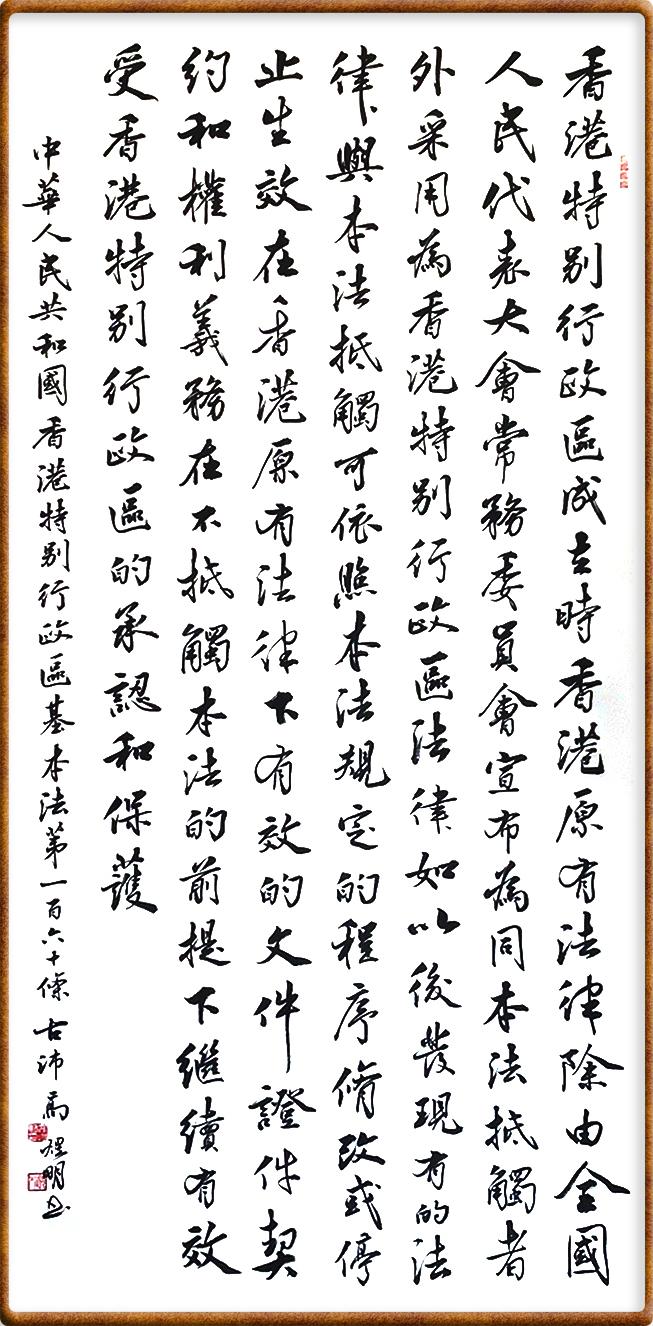 香港特别行政區成立時香港原有法律除由全國
人民代表大會常務委員會宣布為同本法抵觸者
外采用為香港特别行政區法律如以後發現有的法
律與本法抵觸可依照本法規定的程序脩改或停
止生效在香港原有法律下有效的文件證件契
约和權利義務在不抵觸本法的前提下繼續有效
受香港特别行政區的承認和保護
中華人民共和國香港特别行政區基本法第一百六十條 古沛 明书